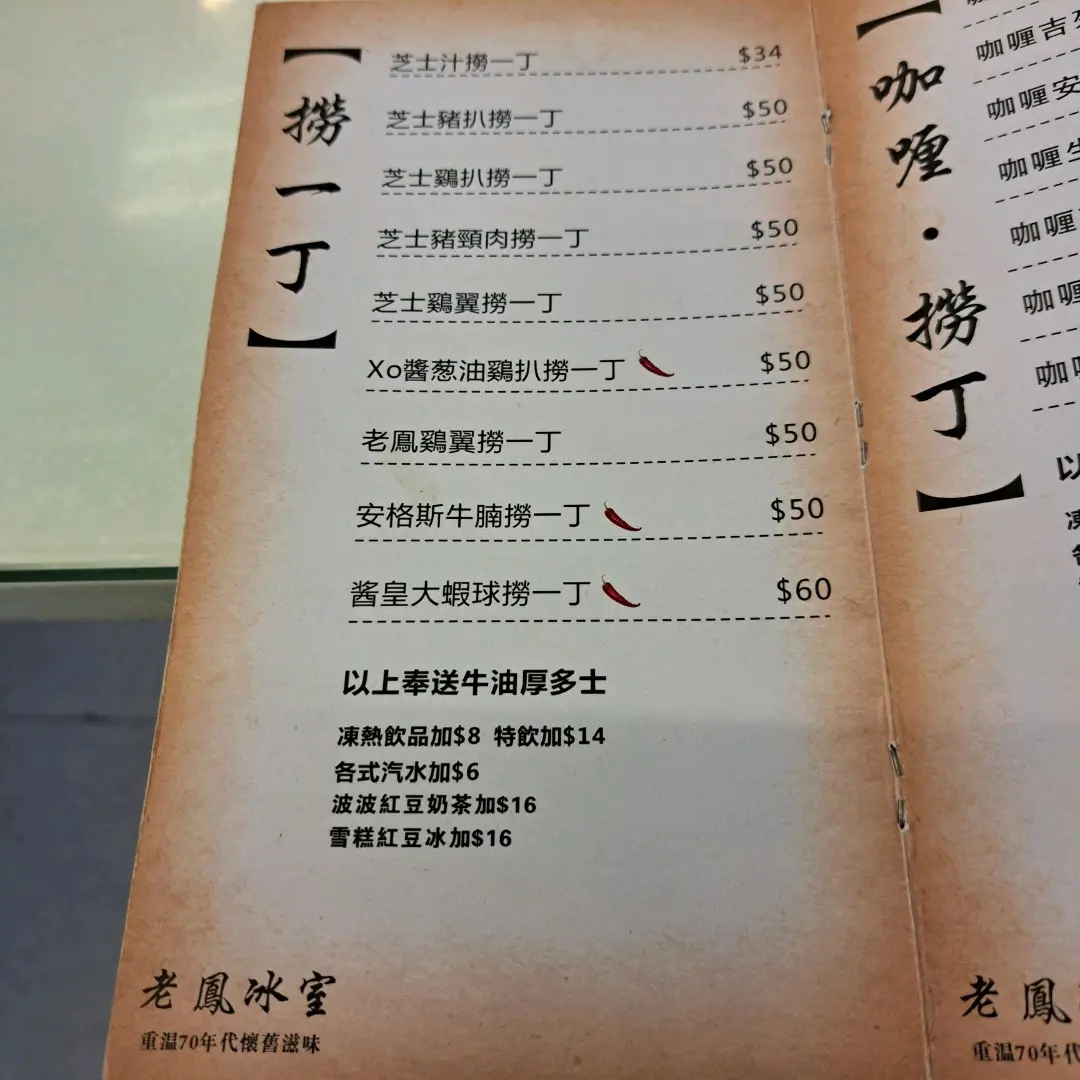 【撈一丁】
芝士汁撈一丁 $34
芝士豬扒撈一丁 $50
芝士鷄扒撈一丁 $50
芝士豬頸肉撈一丁 $50
芝士鷄翼撈一丁 $50
Xo醬葱油鷄扒撈一丁 $50
老鳳鷄翼撈一丁 $50
安格斯牛腩撈一丁 $50
酱皇大蝦球撈一丁 $60
以上奉送牛油厚多士
凍熱飲品加$8 特飲加$14
各式汽水加$6
波波紅豆奶茶加$16
雪糕紅豆冰加$16
老鳳冰室
重溫70年代懷舊滋味
【咖喱·撈丁】
咖喱吉
咖喱安
咖喱生
咖喱
咖喱
咖
以
凍
老鳳
重溫70年代